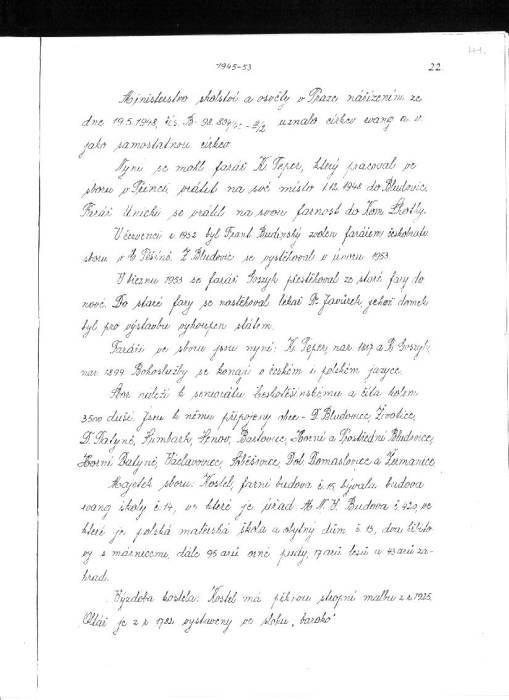 44.
1945-53
22
Ministerstvo školství a osvěty v Praze nařízením ze
dne 19.5.1948, čís. B-98.804/ uznalo církev evang a. v.
jako samostatnou církev.
Nyní se mohl farář K. Teper, který pracoval ve
sboru v Třinci, vrátit na své místo 1.12.1948 do Bludovic.
Farář Unicki se vrátil na svou farnost do Kom. Lhotky.
V červenci r. 1952 byl Frant. Budinský zvolen farářem českobratr.
sboru v Č. Těšíně. Z Bludovic se vystěhoval v únoru 1953.
V březnu 1953 se farář Goszyk přestěhoval ze staré fary do
nové. Do staré fary se nastěhoval lékař Dr. Javůrek, jehož domek
byl pro výstavbu vykoupen státem.
Faráři ve sboru jsou nyní: K. Teper, nar. 1917 a R. Goszyk,
nar. 1899. Bohoslužby se konají v českém i polském jazyce.
Sbor náleží k seniorátu Českotěšínskému a čítá kolem
3500 duší. Jsou k němu připojeny obce - D. Bludovice, Životice,
D. Datyně, Šumbark, Šenov, Bartovice, Horní a Prostřední Bludovice,
Horní Datyně, Václavovice, Soběšovice, Dol. Domaslovice a Žermanice.
Majetek sboru: Kostel, farní budova č. 15, bývalá budova
evang. školy č. 14, ve které je úřad M. N. V. Budova č. 420, ve
které je polská mateřská škola a obytný dům č. 13, dva hřbito
vy s márnicemi, dále 95 arů orné půdy, 17 arů lesů a 43 arů za-
hrad.
Výzdoba kostela: Kostel má pěknou stropní malbu z r. 1925.
Oltář je z r. 1782 vystavený ve slohu „baroko"